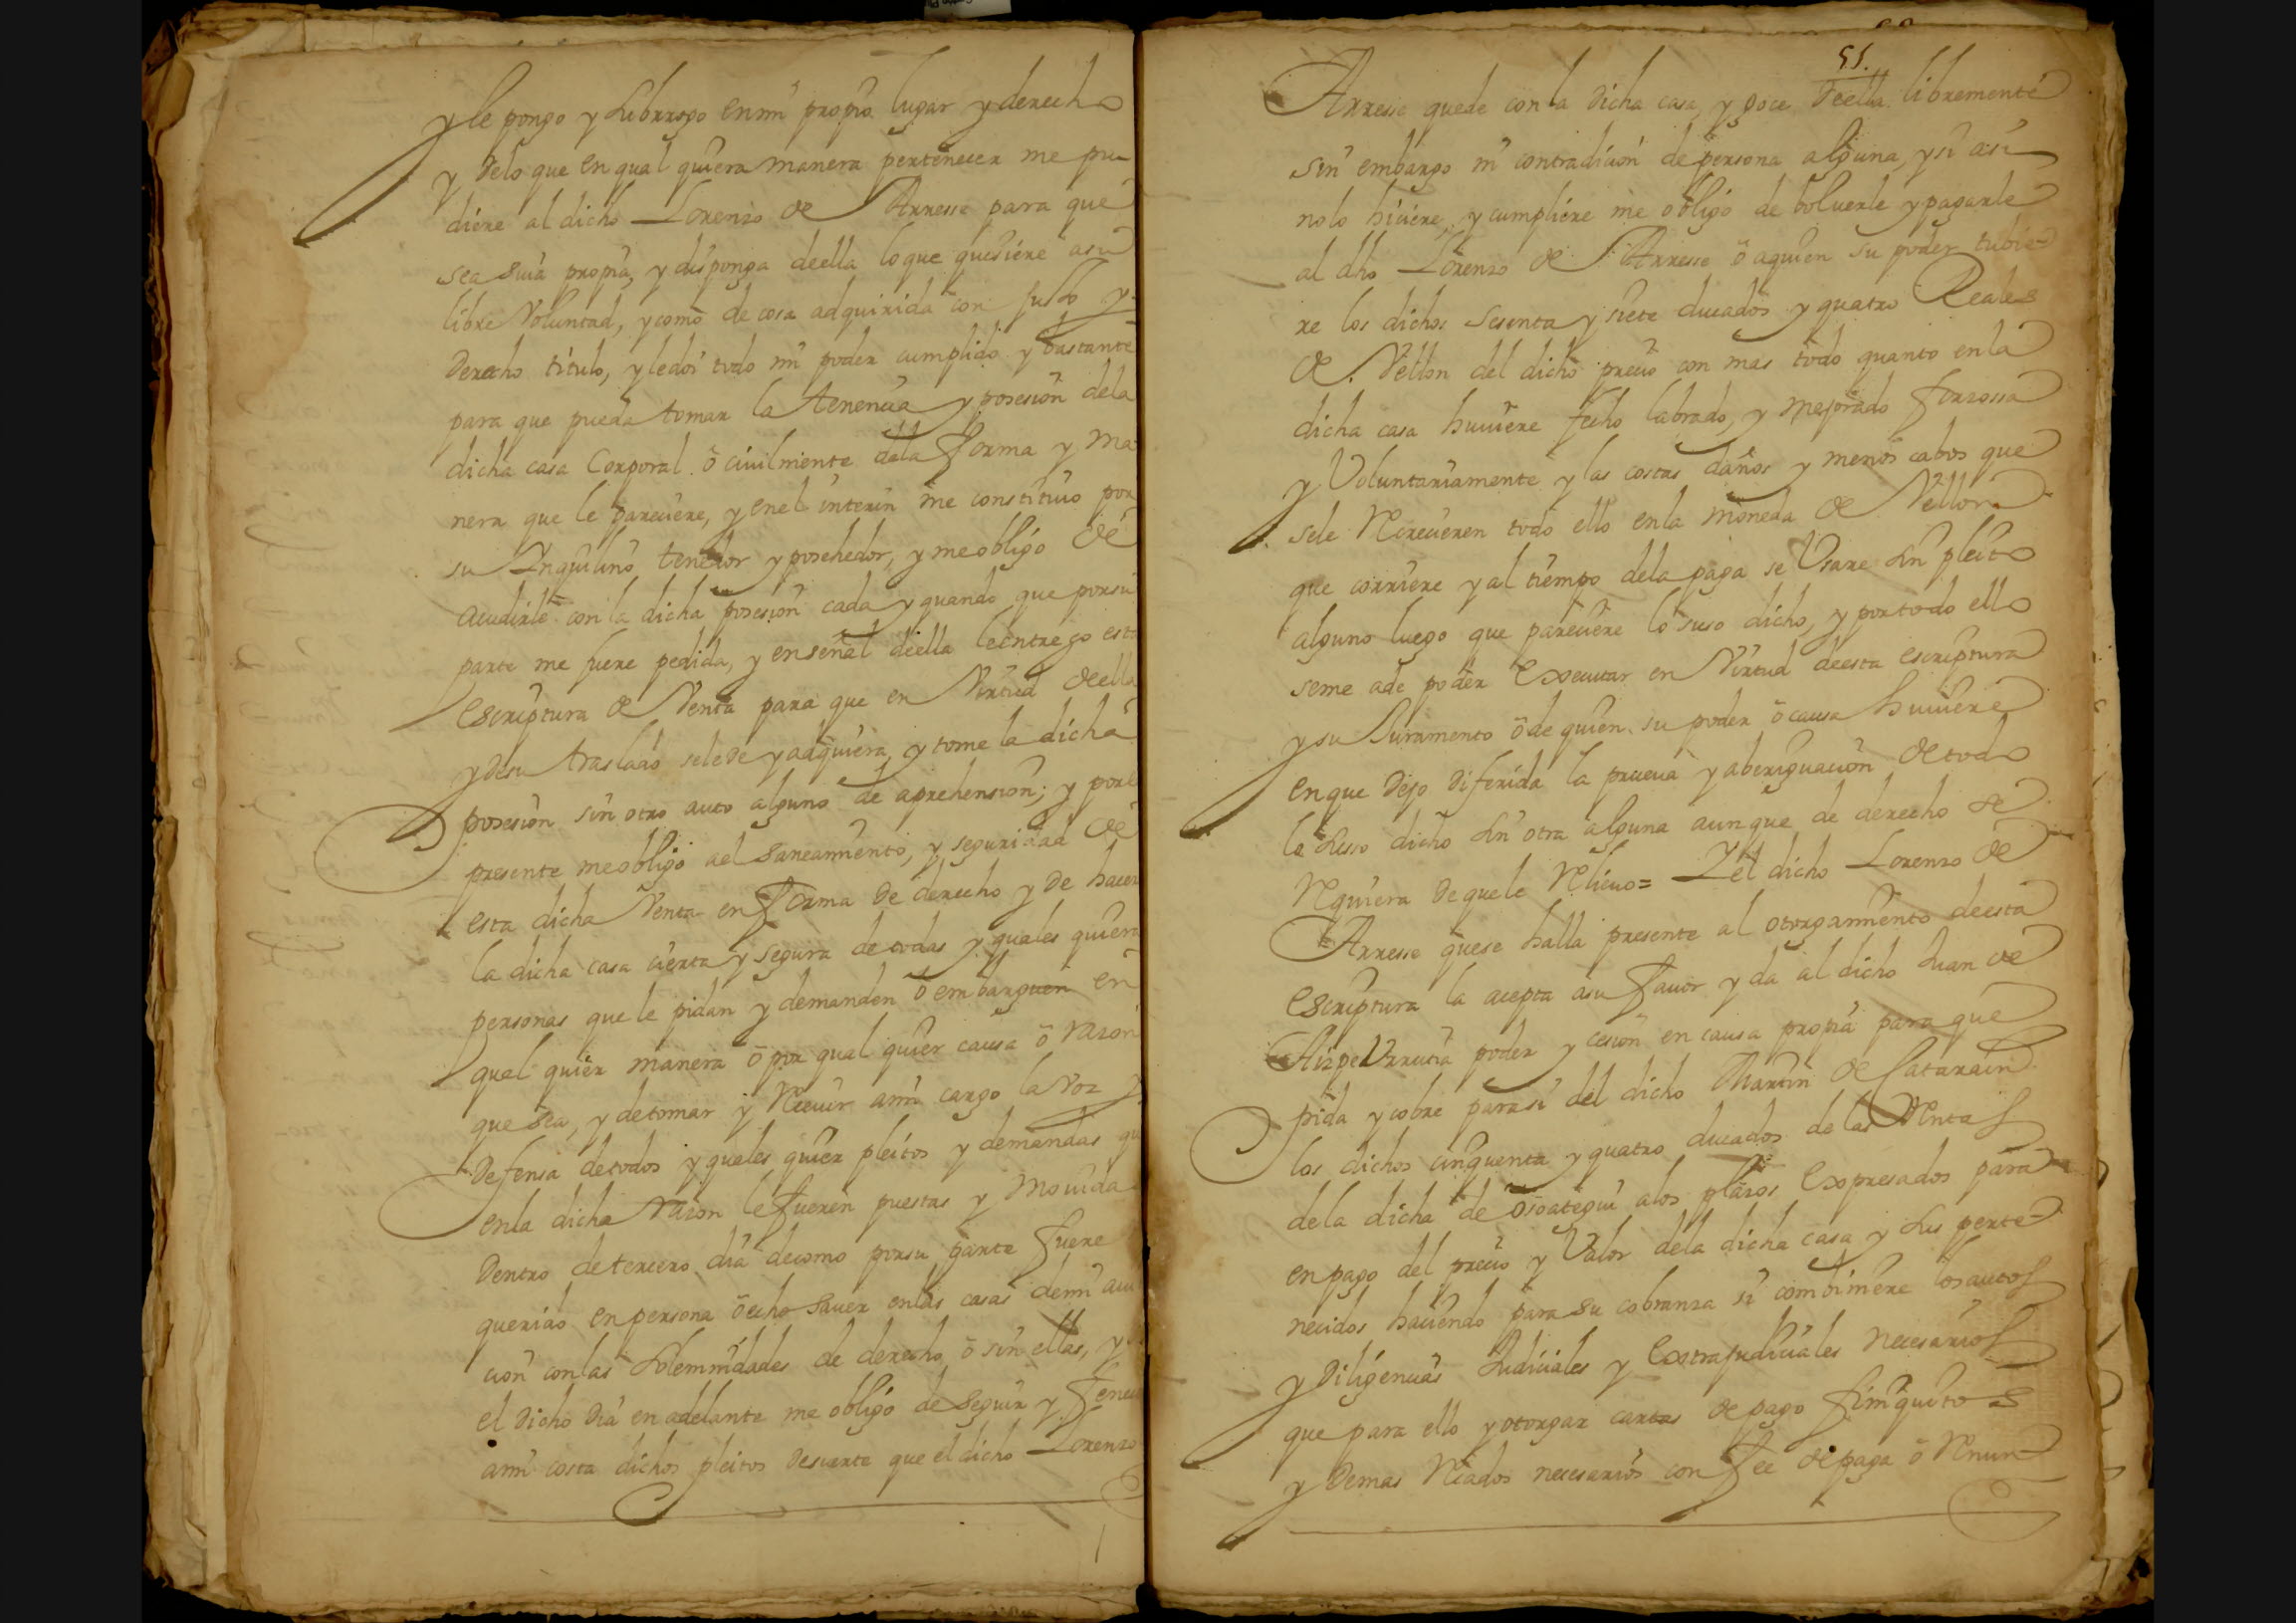 y le pongo y subrrogo en mi propio lugar y derecho
y delo que en qual quiera manera pertenecer me pu
diere al dicho Lorenzo de Arresse para que
sea suia propia, y disponga deella lo que quesiere asu
libre Voluntad, y como de cosa adquirida con justo y
derecho titulo, y ledoi todo mi poder cumplido y bastante
para que pueda tomar la tenencia y posesion dela
dicha casa Corporal o ciuilmente dela forma y ma
nera que le pareciere, y enel interin me constituio por
su Inquilino tenedor y posehedor, y meobligo de
acudirle con la dicha posesion cada y quando que porsu
parte me fuere pedida, y enseñal deella leentrego esta
Escriptura de Venta para que en Virtud deella
y desu traslado selede y adquiera, y tome la dicha
posesion sin otro auto alguno de aprehension; y porel
presente meobligo ael saneamiento, y seguridad de
esta dicha Venta en forma de derecho y de hacer
la dicha casa cierta y segura de todas y quales quiera
personas que le pidan y demanden o embarguen en
qual quier manera o por qual quier causa o razon
que sea, y detomar y Reciuir ami cargo la voz y
defensa detodos y quales quier pleitos y demandas qu
enla dicha razon le fueren puestas y mouida
dentro de tercero dia decomo porsu parte fuere
querido en persona o echo sauer enlas casas demi aui
cion conlas solemnidades de derecho o sin ellas, y
el dicho dia en adelante me obligo de seguir y fenec
ami costa dichos pleitos desuerte que el dicho Lorenzo
51.
Arresse quede con la dicha casa, y goce deella libremente
sin embargo ni contradicion de persona alguna, y si asi
nolo hiciere, y cumpliere me obligo de boluerle y pagarle
al dho Lorenzo de Arresse o aquien su poder tubie
re los dichos sesenta y siete ducados y quatro Reales
de Vellon del dicho precio con mas todo quanto enla
dicha casa huuiere fecho labrado, y mejorado forzossa
y Voluntariamente y las costas daños y menos cabos que
sele Recrecieren todo ello enla moneda de Vellon
que corriere y al tiempo dela paga se Vsare sin pleito
alguno luego que pareciere lo suso dicho, y portodo ello
seme ade poder Executar en Virtud deesta escriptura
y su Juramento o de quien su poder o causa huuiere
en que dejo diferida la prueua y aberiguacion de todo
lo susso dicho sin otra alguna aunque de derecho se
Requiera de que le Relieuo = Y el dicho Lorenzo de
Arresse quese halla presente al otorgamiento deesta
Escriptura la acepta asu fauor y da al dicho Juan de
AizpeVrrutia poder y cesion en causa propia para que
pida y cobre parasi del dicho Martin de Catarain
los dichos cinquenta y quatro ducados de las Rentas
dela dicha de osoategui alos plazos Expresados para
en pago del precio y Valor dela dicha casa y sus perte
necidos haciendo para su cobranza si combiniere los autos
y diligencias Judiciales y Extrajudiciales necesarios
que para ello y otorgar cartas de pago finiquitos
y demas Recados necesarios con fee de paga o Renun